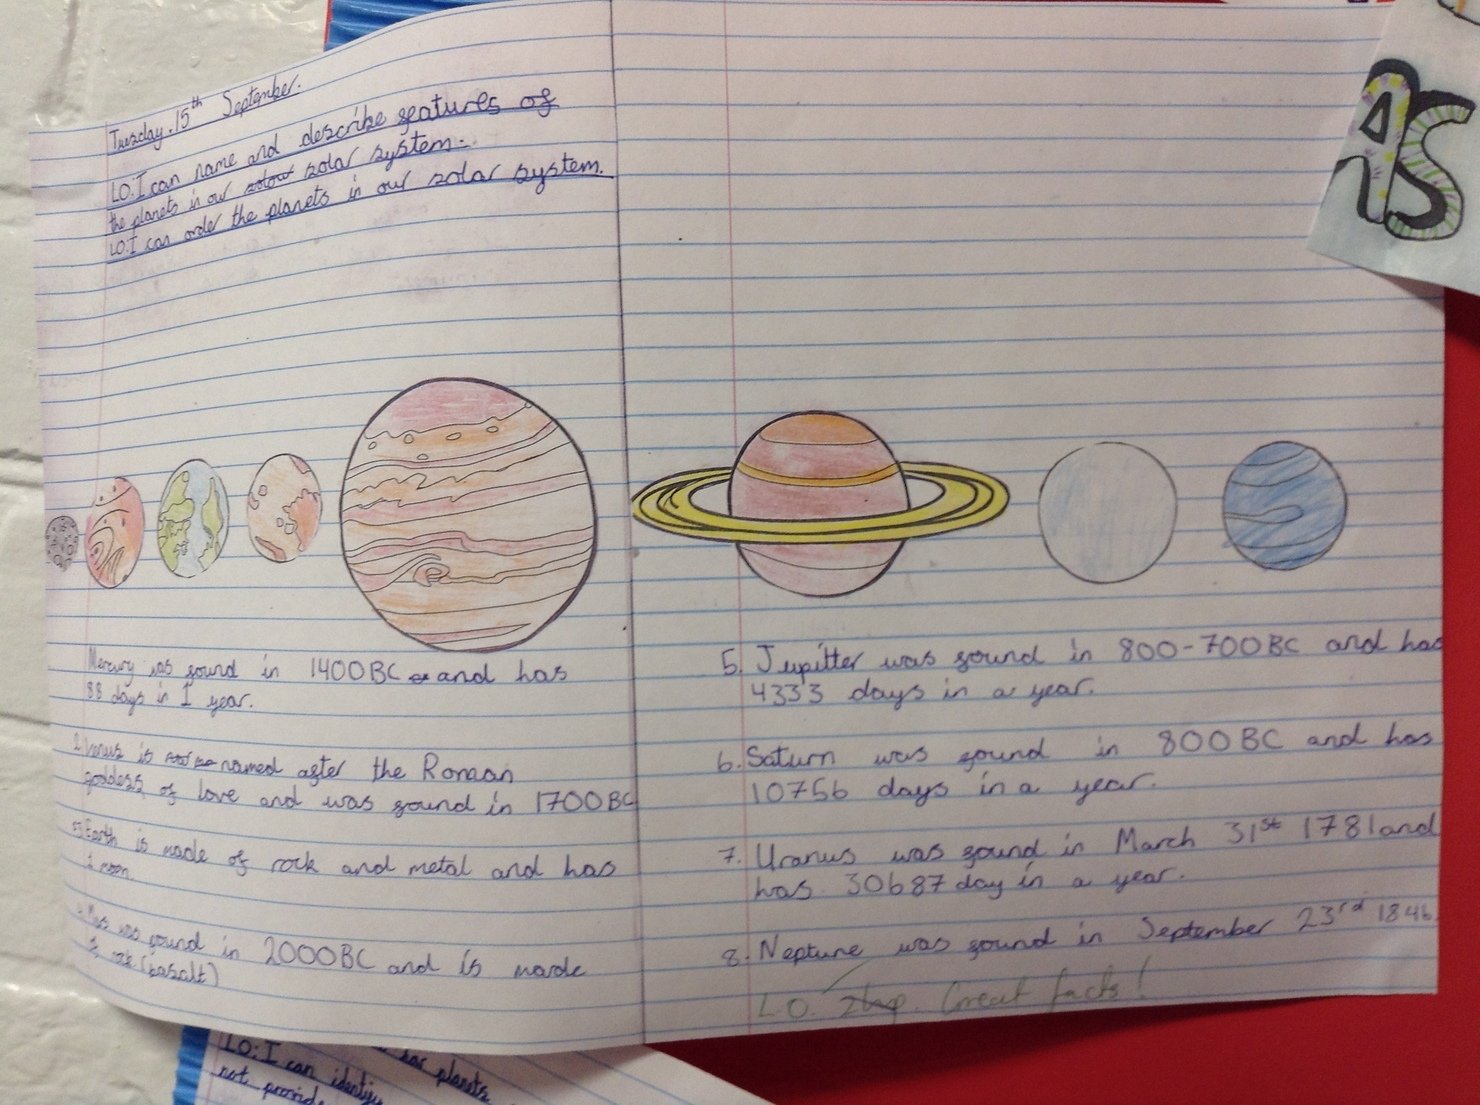 Tuesday. 15th September.
LO: I can name and describe features of
the planets in our solar system.
LO: I can order the planets in our solar system.
Mercury was found in 1400BC and has
88 days in 1 year.
2. Venus is named after the Roman
goddess of love and was found in 1700BC
3. Earth is made of rock and metal and has
1 moon.
Mars was found in 2000BC and is made
of rock (basalt)
5. Jupitter was found in 800-700BC and has
4333 days in a year.
6. Saturn was found in 800BC and has
10756 days in a year.
7. Uranus was found in March 31st 1781 and
has 30687 day in a year.
8. Neptune was found in September 23rd 1846.
L.O. Great facts!
AS
LO: I can identify
planets
not provide